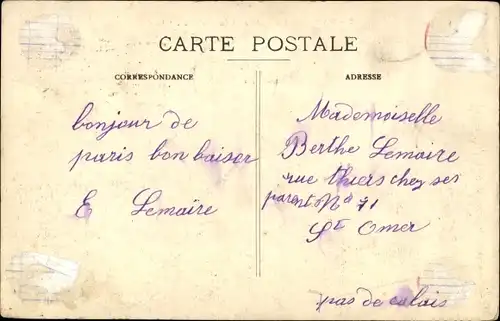 CARTE POSTALE
CORRESPONDANCE
bonjour de
paris bon baiser
E Lemaire
ADRESSE
Mademoiselle
Berthe Lemaire
rue thiers chez ses
parent No 71
St Omer
pas de calais